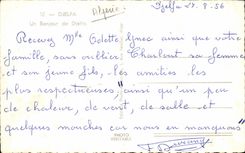 12 - DJELFA
Un Danseur de Djelfa
Algérie
Djelfa 27.8.56
Recevez Mlle Odette Gnec ainsi que votre
famille, sans oublier Charlout sa femme
et son jeune fils, les amitiés les
plus respectueuses, ainsi qu'un peu
de chaleur, de vent, de sable et
quelques mouches car nous en manquons
PHOTO
VÉRITABLE